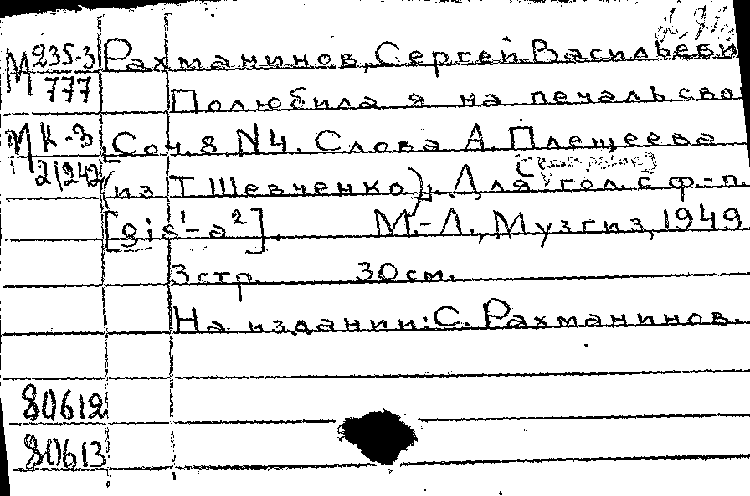 М 235-3/777 Рахманинов, Сергей Васильеви
Полюбила я на печаль сво
М К-3 Соч. 8 N4. Слова А. Плещеева
2/242 (из Т. Шевченко). Для гол. с ф.-п.
[gis¹-a²]. М.-Л., Музгиз, 1949
3 стр. 30 см.
На издании: С. Рахманинов.
80612
80613